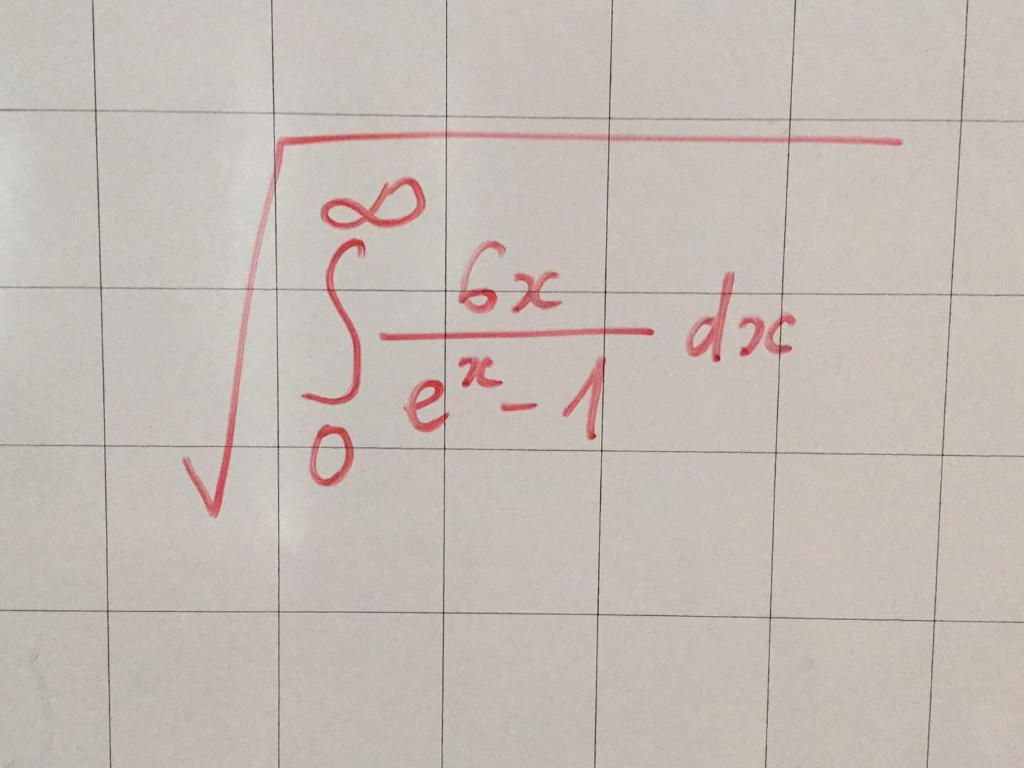 √(∫₀^∞ 6x/(eˣ - 1) dx)